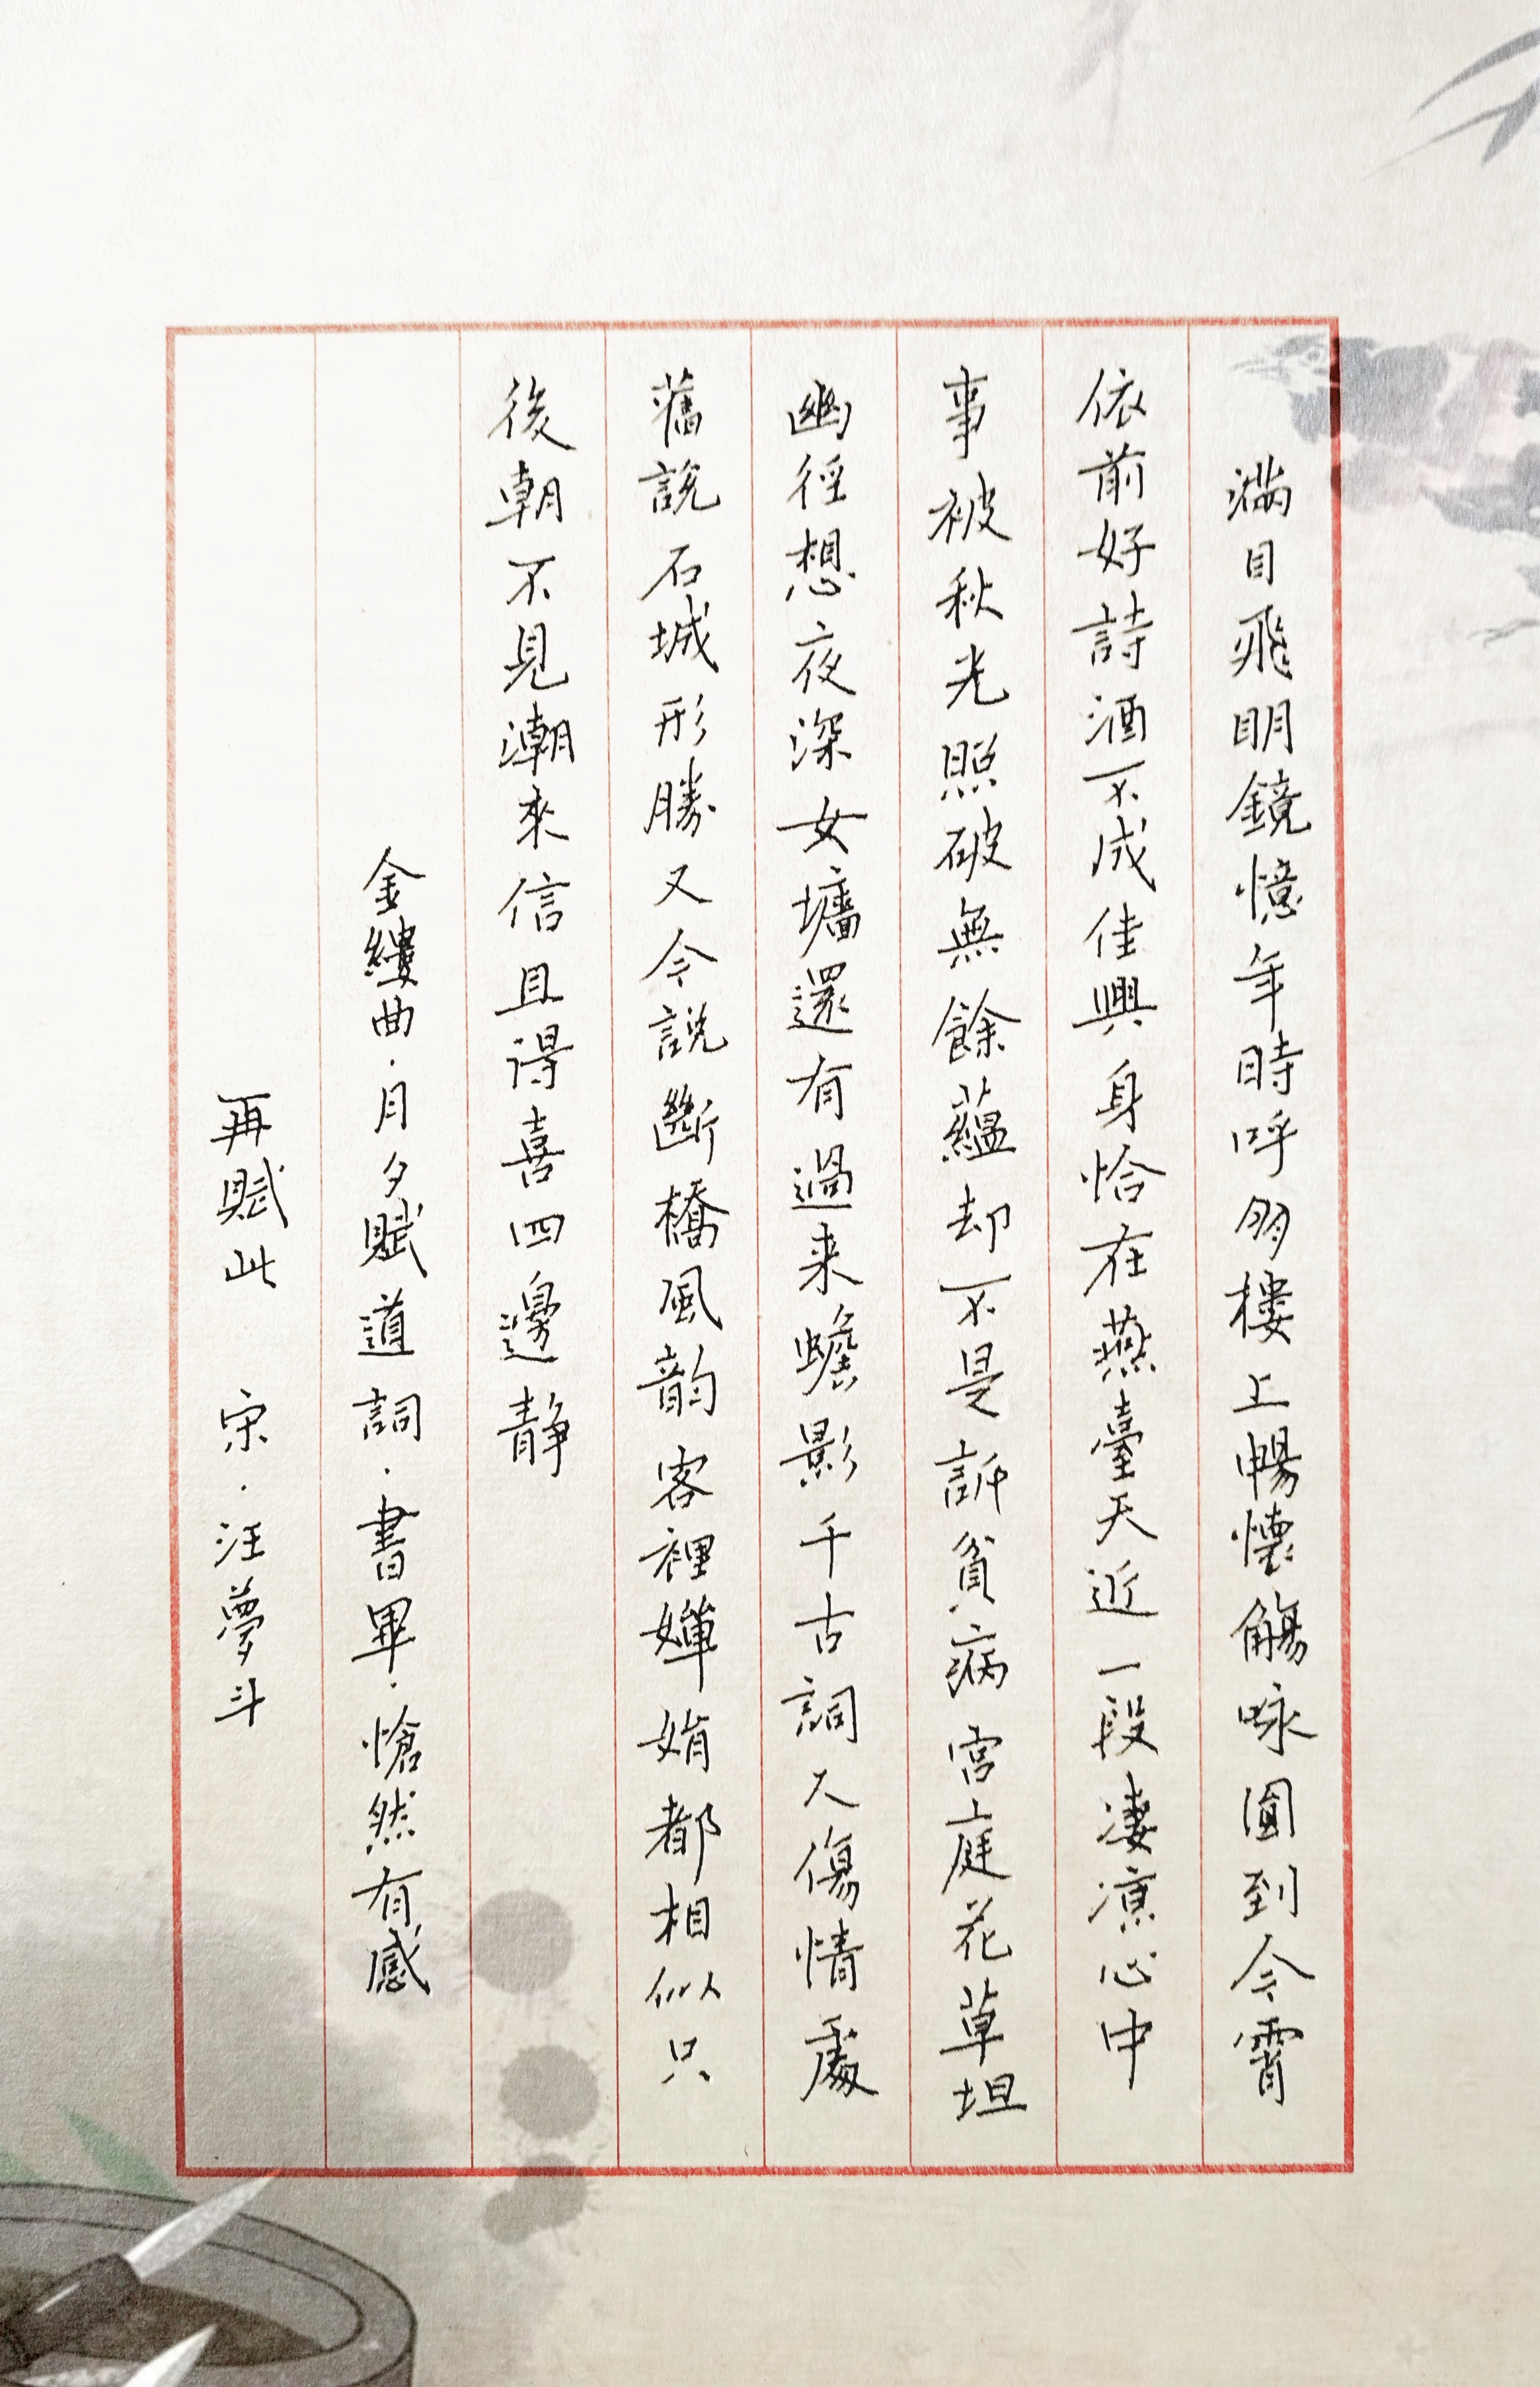 滿目飛明鏡憶年時呼朋樓上暢懷觴咏圓到今霄
依前好詩酒不成佳興身恰在燕臺天近一段凄凉心中
事被秋光照破無餘蘊却不是訴貧病宫庭花草坦
幽徑想夜深女墻還有過来蟾影千古詞人傷情處
舊說石城形勝又今說斷橋風韵客裡嬋娟都相似只
後朝不見潮來信且得喜四邊静
金縷曲·月夕賦道詞·書畢·愴然有感
再賦此 宋·汪夢斗